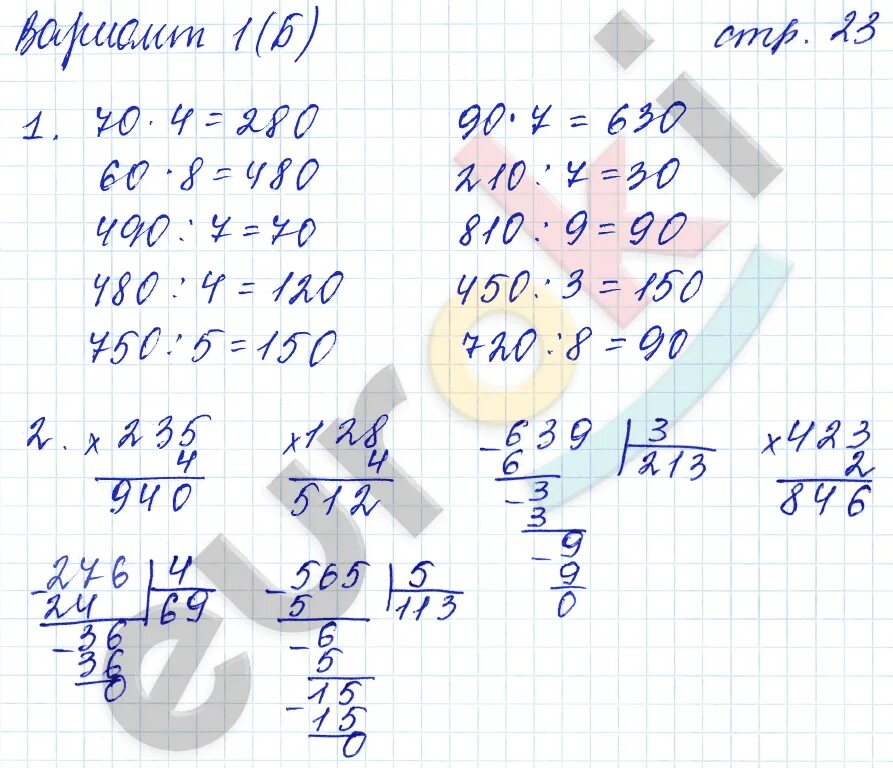 Вариант 1(Б) стр. 23
1. 70 · 4 = 280 90 · 7 = 630
60 · 8 = 480 210 : 7 = 30
490 : 7 = 70 810 : 9 = 90
480 : 4 = 120 450 : 3 = 150
750 : 5 = 150 720 : 8 = 90
2. × 235 × 128 - 639 | 3 × 423
4 4 6 213 2
940 512 - 3 846
3
- 9
9
0
- 276 | 4 - 565 | 5
24 69 5 113
- 36 - 6
36 5
0 - 15
15
0
euroki